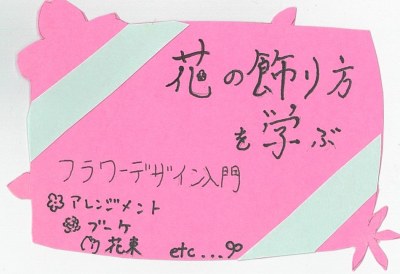 花の飾り方
を学ぶ
フラワーデザイン入門
アレンジメント
ブーケ
花束 etc...